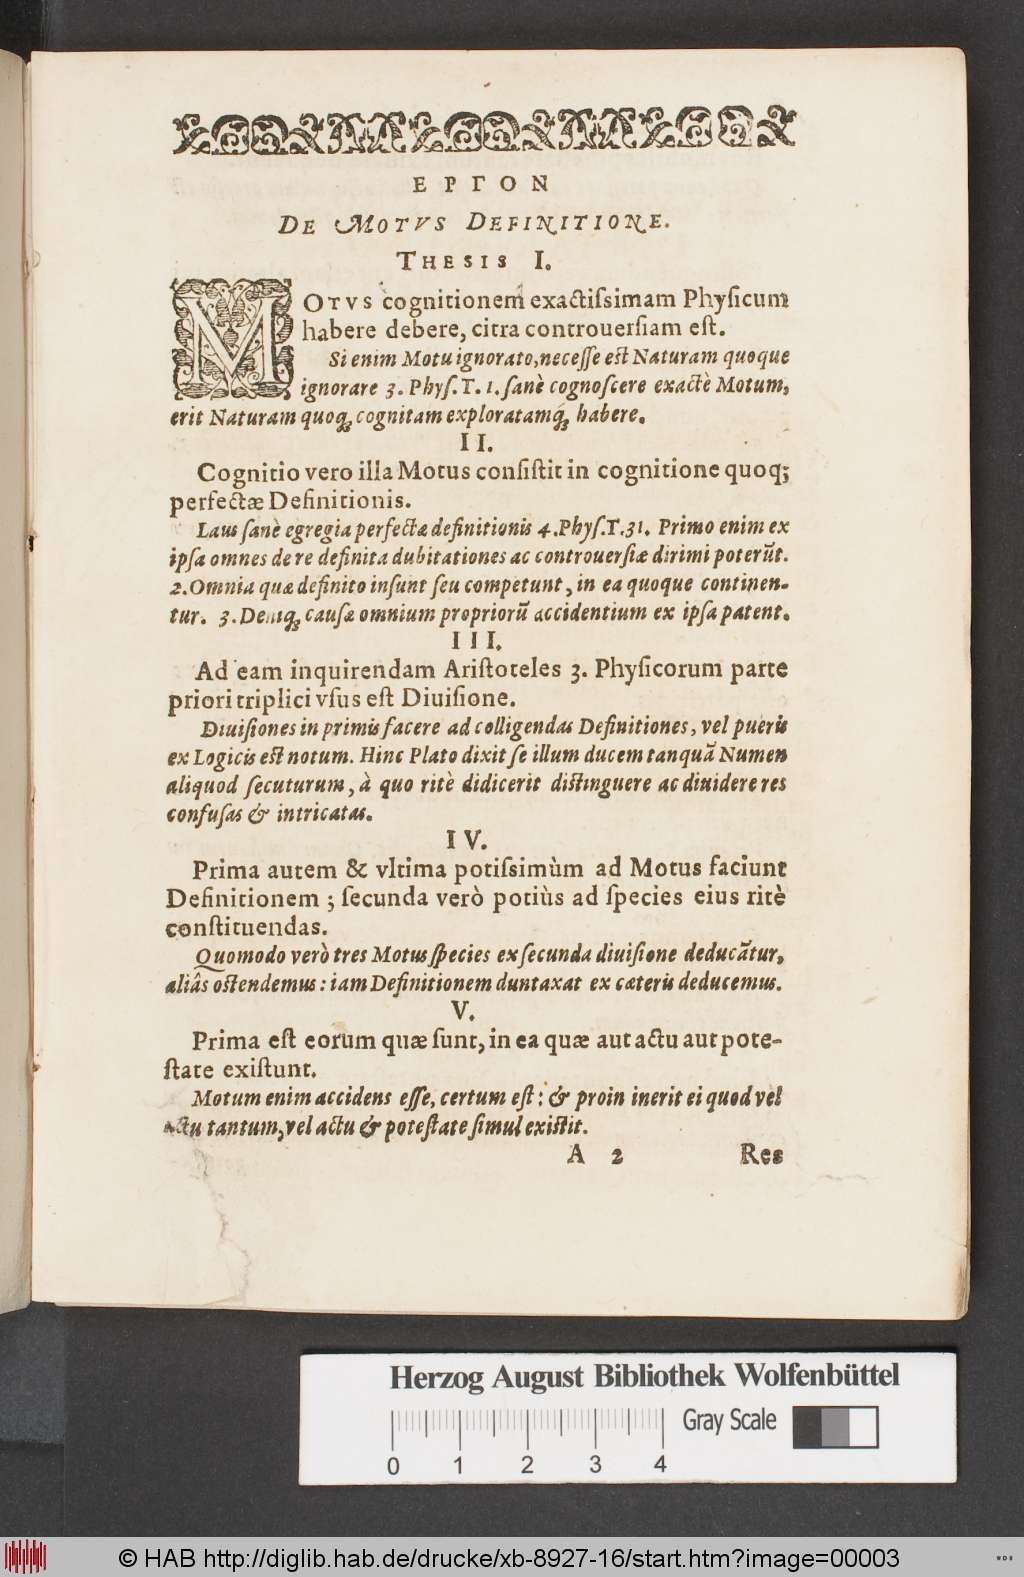 ΕΡΓΟΝ
DE MOTVS DEFINITIONE.
THESIS I.
MOTVS cognitionem exactiſsimam Phyſicum
habere debere, citra controuerſiam eſt.
Si enim Motu ignorato, neceſſe eſt Naturam quoque
ignorare 3. Phyſ. T. 1. ſanè cognoſcere exactè Motum,
erit Naturam quoq́ꝫ cognitam exploratamq́ꝫ habere.
II.
Cognitio vero illa Motus conſiſtit in cognitione quoq;
perfectæ Definitionis.
Laus ſanè egregia perfectæ definitionis 4. Phyſ. T. 31. Primo enim ex
ipſa omnes de re definita dubitationes ac controuerſiæ dirimi poterũt.
2. Omnia quæ definito inſunt ſeu competunt, in ea quoque continen-
tur. 3. Deniq́ꝫ cauſæ omnium propriorũ accidentium ex ipſa patent.
III.
Ad eam inquirendam Ariſtoteles 3. Phyſicorum parte
priori triplici vſus eſt Diuiſione.
Diuiſiones in primis facere ad colligendas Definitiones, vel pueris
ex Logicis eſt notum. Hinc Plato dixit ſe illum ducem tanquã Numen
aliquod ſecuturum, à quo ritè didicerit diſtinguere ac diuidere res
confuſas & intricatas.
IV.
Prima autem & vltima potiſsimùm ad Motus faciunt
Definitionem; ſecunda verò potiùs ad ſpecies eius ritè
conſtituendas.
Quomodo verò tres Motus ſpecies ex ſecunda diuiſione deducãtur,
aliâs oſtendemus: iam Definitionem duntaxat ex cæteris deducemus.
V.
Prima eſt eorum quæ ſunt, in ea quæ aut actu aut pote-
ſtate exiſtunt.
Motum enim accidens eſſe, certum eſt: & proin inerit ei quod vel
actu tantum, vel actu & poteſtate ſimul exiſtit.
A 2 Res
Herzog August Bibliothek Wolfenbüttel
Gray Scale
0 1 2 3 4
© HAB http://diglib.hab.de/drucke/xb-8927-16/start.htm?image=00003